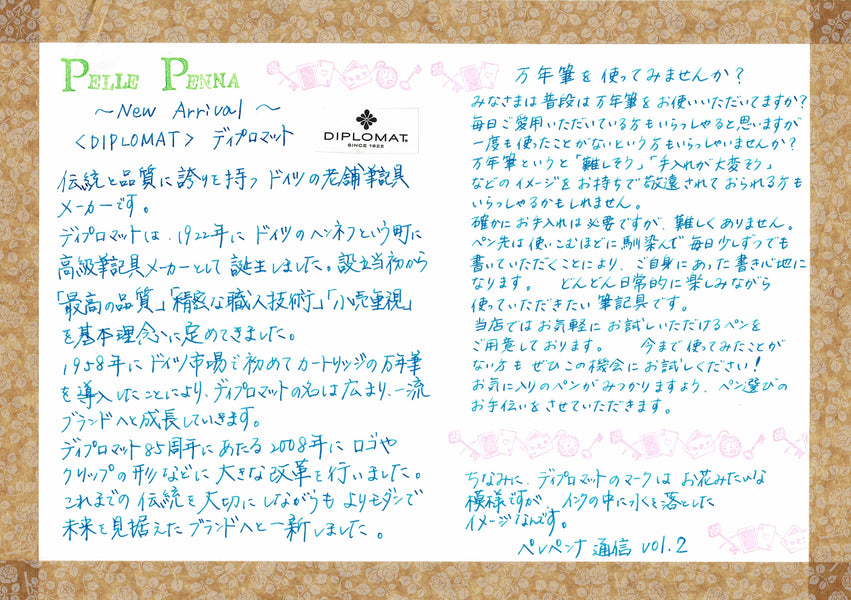 PELLE PENNA
～New Arrival～
〈DIPLOMAT〉 ディプロマット
DIPLOMAT
SINCE 1922
伝統と品質に誇りを持つ ドイツの老舗筆記具
メーカーです。
ディプロマットは、1922年に ドイツのヘンネフという町に
高級筆記具メーカーとして 誕生しました。設立当初から
「最高の品質」「精密な職人技術」「小売重視」
を基本理念に定めてきました。
1958年にドイツ市場で初めて カートリッジの万年筆
を導入したことにより、ディプロマットの名は広まり、一流
ブランドへと成長していきます。
ディプロマット85周年にあたる2008年に ロゴや
クリップの形などに 大きな改革を行いました。
これまでの 伝統を大切に しながらも よりモダンで
未来を見据えた ブランドへと一新しました。
万年筆を使ってみませんか？
みなさまは普段は万年筆をお使いいただいてますか？
毎日ご愛用いただいている方もいらっしゃると思いますが
一度も使ったことがないという方もいらっしゃいませんか？
万年筆というと「難しそう」「手入れが大変そう」
などのイメージをお持ちで敬遠されておられる方も
いらっしゃるかもしれません。
確かにお手入れは必要ですが、難しくありません。
ペン先は使いこむほどに馴染んで 毎日少しずつでも
書いていただくことにより、ご自身にあった書き心地に
なります。 どんどん日常的に楽しみながら
使っていただきたい筆記具です。
当店ではお気軽にお試しいただけるペンを
ご用意しております。 今まで使ってみたことが
ない方も ぜひこの機会にお試しください！
お気に入りのペンがみつかりますよう、ペン選びの
お手伝いをさせていただきます。
ちなみに、ディプロマットのマークは お花みたいな
模様ですが インクの中に水を落とした
イメージなんです。
ペレペンナ通信 vol.2